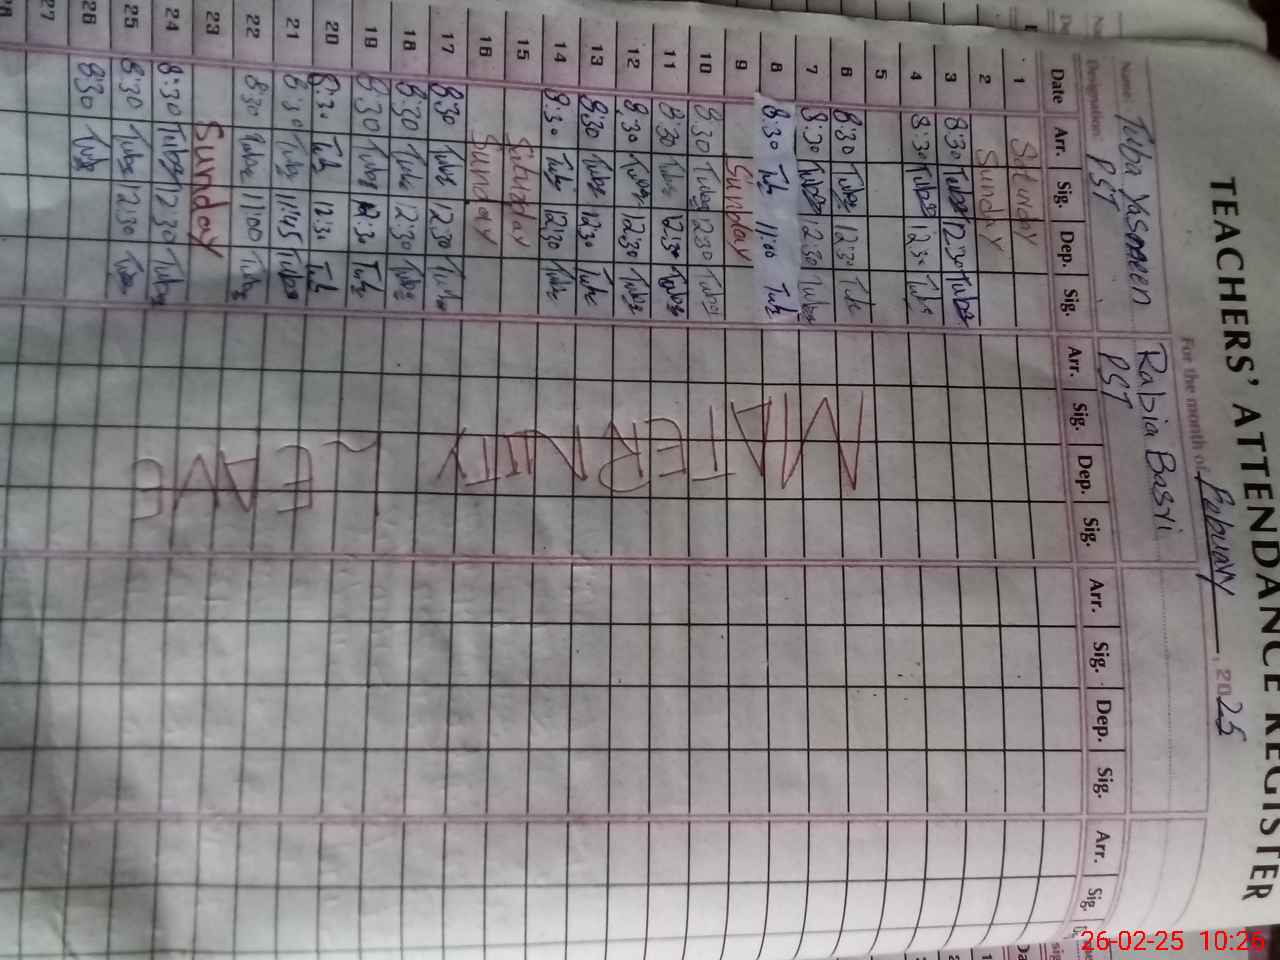 TEACHERS' ATTENDANCE REGISTER
For the month of Febuary, 2025
Name: Tuba Yasmeen Rabia Basri
Designation: PST PST
Date Arr. Sig. Dep. Sig. Arr. Sig. Dep. Sig. Arr. Sig. Dep. Sig. Arr. Sig.
1 Saturday
2 Sunday
3 8:30 Tuba 12:30 Tuba
4 8:30 Tuba 12:30 Tuba
5
6 8:30 Tuba 12:30 Tuba
7 8:30 Tuba 12:30 Tuba
8 8:30 Tuba 11:00 Tuba
9 Sunday
10 8:30 Tuba 12:30 Tuba
11 8:30 Tuba 12:30 Tuba
12 8:30 Tuba 12:30 Tuba
13 8:30 Tuba 12:30 Tuba
14 8:30 Tuba 12:30 Tuba
15
16 Sunday
17 8:30 Tuba 12:30 Tuba
18 8:30 Tuba 12:30 Tuba
19 8:30 Tuba 12:30 Tuba
20 8:30 Tuba 12:30 Tuba
21 8:30 Tuba 11:45 Tuba
22 8:30 Tuba 11:00 Tuba
23 Sunday
24 8:30 Tuba 12:30 Tuba
25 8:30 Tuba 12:30 Tuba
26 8:30 Tuba
27
28
MATERNITY LEAVE
26-02-25 10:26